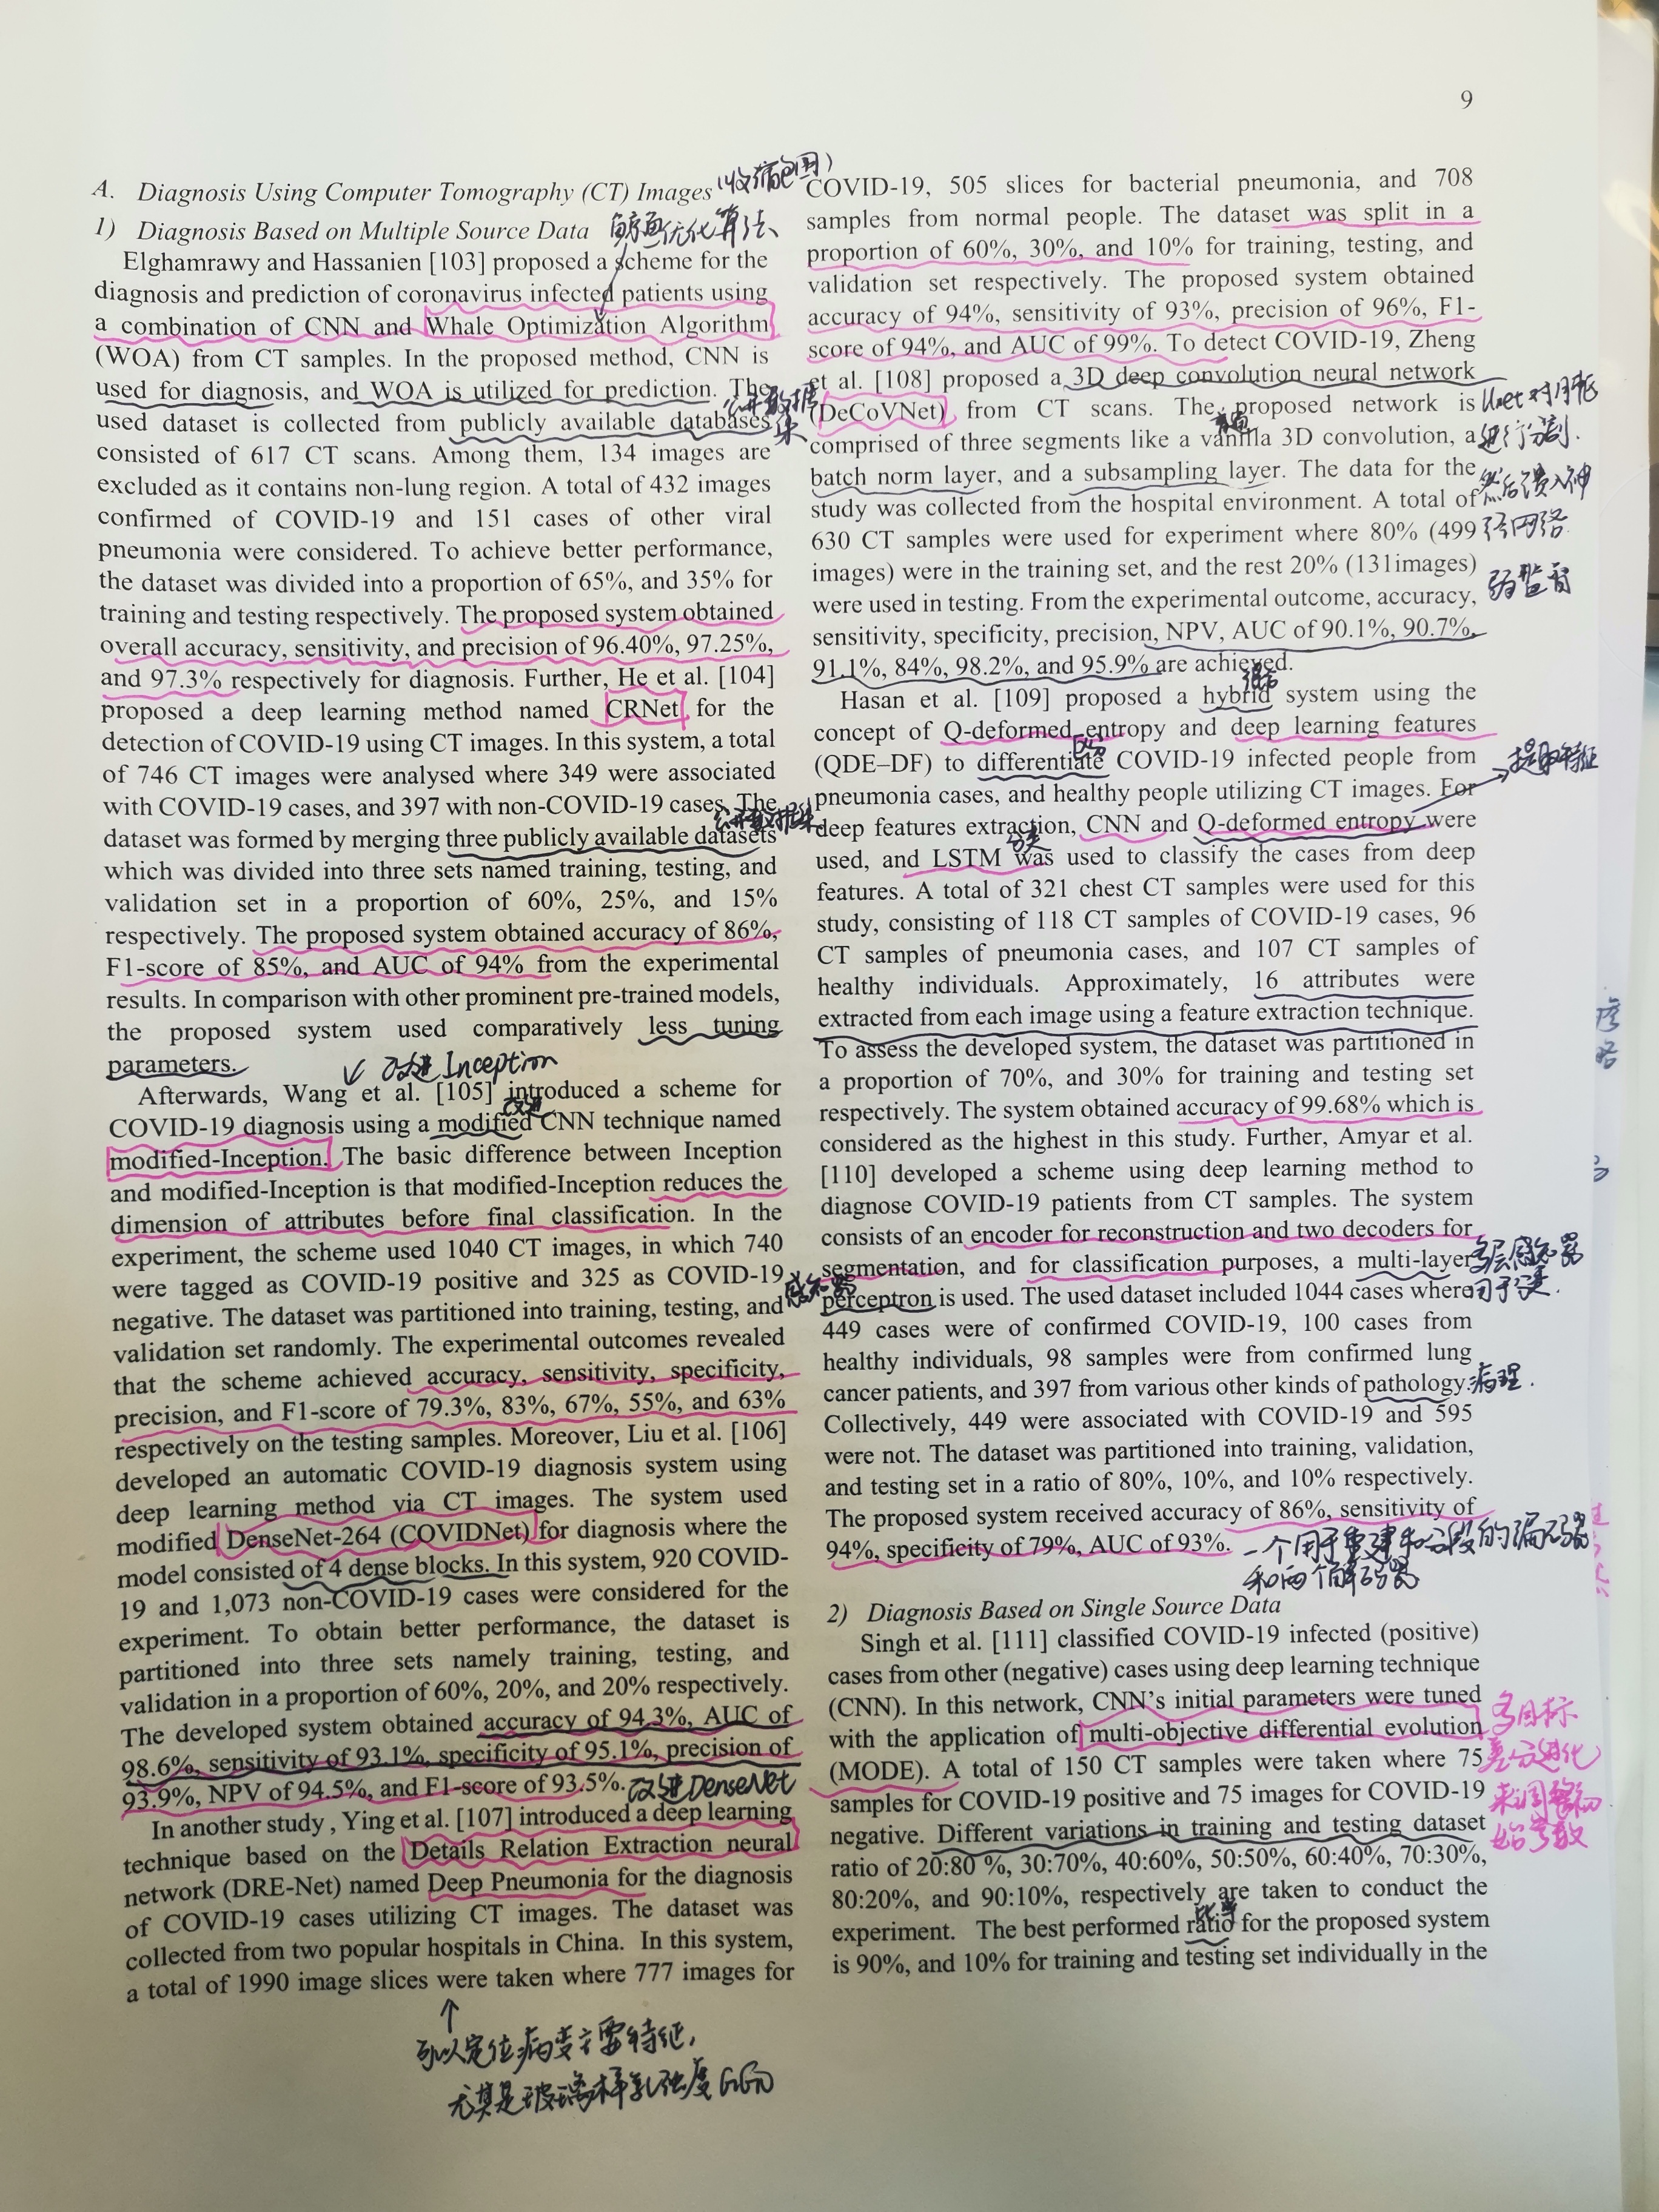 9
A. Diagnosis Using Computer Tomography (CT) Images
1) Diagnosis Based on Multiple Source Data 鲸鱼优化算法
Elghamrawy and Hassanien [103] proposed a scheme for the
diagnosis and prediction of coronavirus infected patients using
a combination of CNN and Whale Optimization Algorithm
(WOA) from CT samples. In the proposed method, CNN is
used for diagnosis, and WOA is utilized for prediction. The
公开数据集
used dataset is collected from publicly available databases
consisted of 617 CT scans. Among them, 134 images are
excluded as it contains non-lung region. A total of 432 images
confirmed of COVID-19 and 151 cases of other viral
pneumonia were considered. To achieve better performance,
the dataset was divided into a proportion of 65%, and 35% for
training and testing respectively. The proposed system obtained
overall accuracy, sensitivity, and precision of 96.40%, 97.25%,
and 97.3% respectively for diagnosis. Further, He et al. [104]
proposed a deep learning method named CRNet for the
detection of COVID-19 using CT images. In this system, a total
of 746 CT images were analysed where 349 were associated
with COVID-19 cases, and 397 with non-COVID-19 cases. The
公开数据集
dataset was formed by merging three publicly available datasets
which was divided into three sets named training, testing, and
validation set in a proportion of 60%, 25%, and 15%
respectively. The proposed system obtained accuracy of 86%,
F1-score of 85%, and AUC of 94% from the experimental
results. In comparison with other prominent pre-trained models,
the proposed system used comparatively less tuning
parameters.
改进Inception
Afterwards, Wang et al. [105] introduced a scheme for
改进
COVID-19 diagnosis using a modified CNN technique named
modified-Inception. The basic difference between Inception
and modified-Inception is that modified-Inception reduces the
dimension of attributes before final classification. In the
experiment, the scheme used 1040 CT images, in which 740
were tagged as COVID-19 positive and 325 as COVID-19
negative. The dataset was partitioned into training, testing, and
validation set randomly. The experimental outcomes revealed
that the scheme achieved accuracy, sensitivity, specificity,
precision, and F1-score of 79.3%, 83%, 67%, 55%, and 63%
respectively on the testing samples. Moreover, Liu et al. [106]
developed an automatic COVID-19 diagnosis system using
deep learning method via CT images. The system used
modified DenseNet-264 (COVIDNet) for diagnosis where the
model consisted of 4 dense blocks. In this system, 920 COVID-
19 and 1,073 non-COVID-19 cases were considered for the
experiment. To obtain better performance, the dataset is
partitioned into three sets namely training, testing, and
validation in a proportion of 60%, 20%, and 20% respectively.
The developed system obtained accuracy of 94.3%, AUC of
98.6%, sensitivity of 93.1%, specificity of 95.1%, precision of
93.9%, NPV of 94.5%, and F1-score of 93.5%. 改进DenseNet
In another study , Ying et al. [107] introduced a deep learning
technique based on the Details Relation Extraction neural
network (DRE-Net) named Deep Pneumonia for the diagnosis
of COVID-19 cases utilizing CT images. The dataset was
collected from two popular hospitals in China. In this system,
a total of 1990 image slices were taken where 777 images for
可以定位病变主要特征,
尤其是玻璃样乳强度GGO
COVID-19, 505 slices for bacterial pneumonia, and 708
samples from normal people. The dataset was split in a
proportion of 60%, 30%, and 10% for training, testing, and
validation set respectively. The proposed system obtained
accuracy of 94%, sensitivity of 93%, precision of 96%, F1-
score of 94%, and AUC of 99%. To detect COVID-19, Zheng
et al. [108] proposed a 3D deep convolution neural network
(DeCoVNet) from CT scans. The proposed network is
comprised of three segments like a vanilla 3D convolution, a
batch norm layer, and a subsampling layer. The data for the
study was collected from the hospital environment. A total of
630 CT samples were used for experiment where 80% (499
images) were in the training set, and the rest 20% (131images)
were used in testing. From the experimental outcome, accuracy,
sensitivity, specificity, precision, NPV, AUC of 90.1%, 90.7%,
91.1%, 84%, 98.2%, and 95.9% are achieved.
Unet对月市
进行分割.
然后馈入神
经网络
弱监督
混合
Hasan et al. [109] proposed a hybrid system using the
concept of Q-deformed entropy and deep learning features
区分
(QDE–DF) to differentiate COVID-19 infected people from
pneumonia cases, and healthy people utilizing CT images. For
提取特征
deep features extraction, CNN and Q-deformed entropy were
分类
used, and LSTM was used to classify the cases from deep
features. A total of 321 chest CT samples were used for this
study, consisting of 118 CT samples of COVID-19 cases, 96
CT samples of pneumonia cases, and 107 CT samples of
healthy individuals. Approximately, 16 attributes were
extracted from each image using a feature extraction technique.
To assess the developed system, the dataset was partitioned in
a proportion of 70%, and 30% for training and testing set
respectively. The system obtained accuracy of 99.68% which is
considered as the highest in this study. Further, Amyar et al.
[110] developed a scheme using deep learning method to
diagnose COVID-19 patients from CT samples. The system
consists of an encoder for reconstruction and two decoders for
segmentation, and for classification purposes, a multi-layer
多层感知器
感知器
perceptron is used. The used dataset included 1044 cases where
用于分类.
449 cases were of confirmed COVID-19, 100 cases from
healthy individuals, 98 samples were from confirmed lung
cancer patients, and 397 from various other kinds of pathology.
病理.
Collectively, 449 were associated with COVID-19 and 595
were not. The dataset was partitioned into training, validation,
and testing set in a ratio of 80%, 10%, and 10% respectively.
The proposed system received accuracy of 86%, sensitivity of
94%, specificity of 79%, AUC of 93%. 一个用于重建和分段的编码器
和两个解码器
2) Diagnosis Based on Single Source Data
Singh et al. [111] classified COVID-19 infected (positive)
cases from other (negative) cases using deep learning technique
(CNN). In this network, CNN's initial parameters were tuned
with the application of multi-objective differential evolution
(MODE). A total of 150 CT samples were taken where 75
samples for COVID-19 positive and 75 images for COVID-19
negative. Different variations in training and testing dataset
多目标
差分进化
来调整初
始参数
ratio of 20:80 %, 30:70%, 40:60%, 50:50%, 60:40%, 70:30%,
80:20%, and 90:10%, respectively are taken to conduct the
比率
experiment. The best performed ratio for the proposed system
is 90%, and 10% for training and testing set individually in the